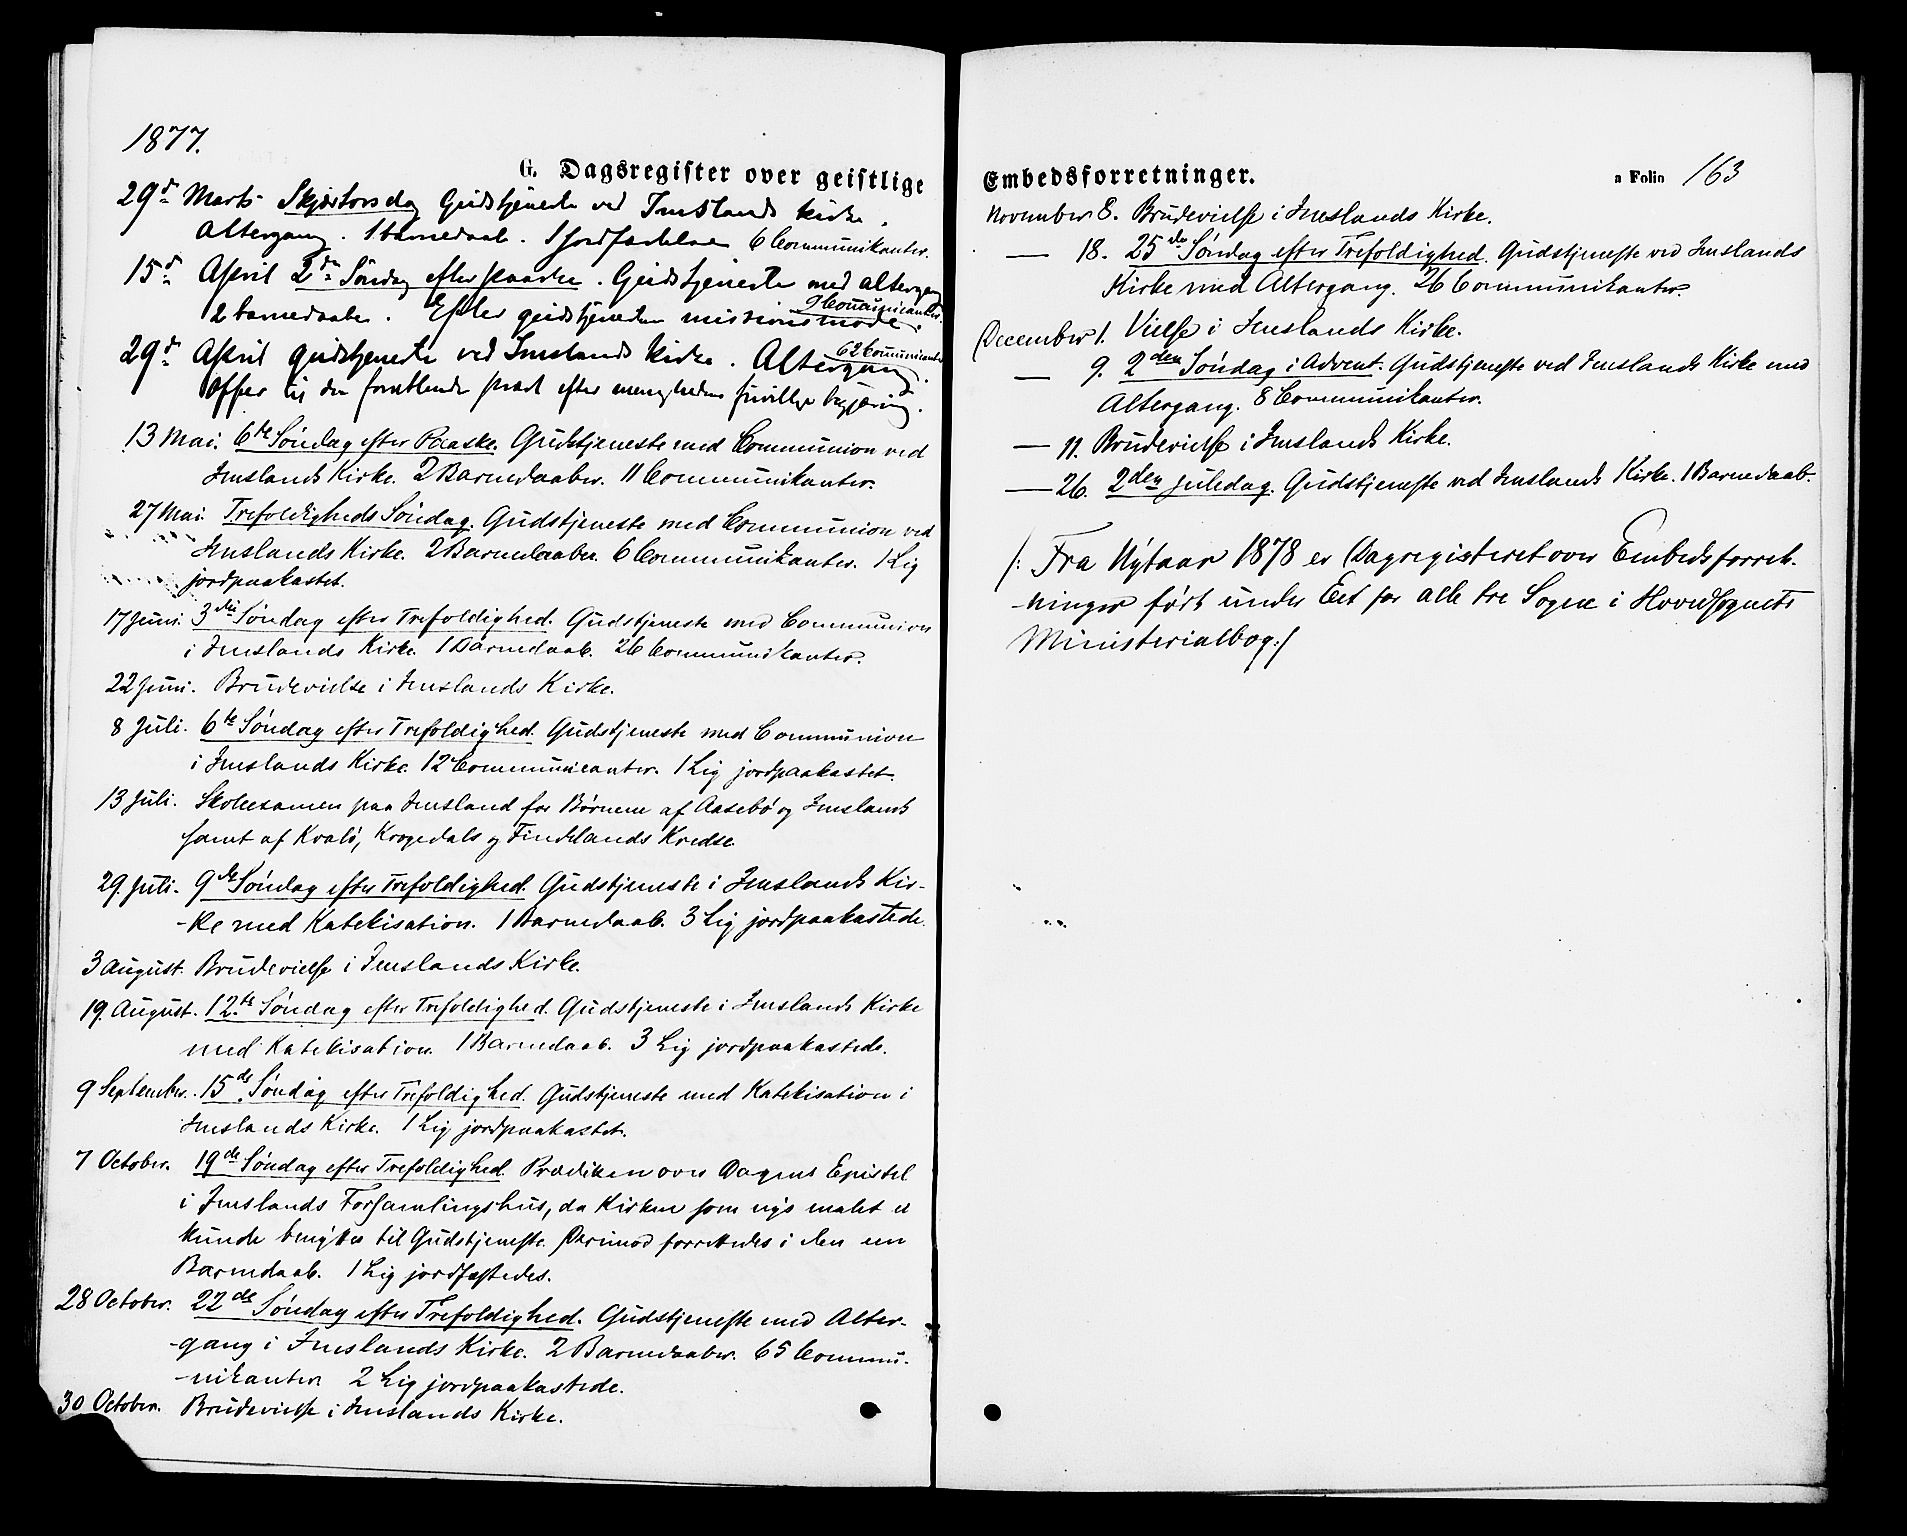 1877.
G. Dagsregister over geistlige
29de Marts Skjærtorsdag Gudstjeneste ved Imslands kirke.
Altergang. 1 barnedaab. 1 jordfæstelse 6 Communikanter.
15de April 2den Søndag efter paaske. Gudstjeneste med altergang
9 Communicanter.
2 barnedaaber. Efter gudstjenesten missionsmøde.
29de April gudstjeneste ved Imslands kirke. Altergang.
62 Communicanter
Offer til den forrettende præst efter menighedens frivillige begjæring.
13 Mai. 6te Søndag efter Paaske. Gudstjeneste med Communion ved
Imslands Kirke. 2 Barnedaaber. 11 Communikanter.
27 Mai. Trefoldigheds Søndag. Gudstjeneste med Communion ved
Imslands Kirke. 2 Barnedaaber. 6 Communikanter. 1 Lig
jordpaakastet.
17 Juni. 3die Søndag efter Trefoldighed. Gudstjeneste med Communion
i Imslands Kirke. 1 Barnedaab. 26 Communikanter.
22 Juni. Brudevielse i Imslands Kirke.
8 Juli. 6te Søndag efter Trefoldighed. Gudstjeneste med Communion
i Imslands Kirke. 12 Communicanter. 1 Lig jordpaakastet.
13 Juli. Skoleexamen paa Imsland for Børnene af Aasebø og Imslands
samt af Kvalø, Krogedals og Findelands Kredse.
29. Juli. 9de Søndag efter Trefoldighed. Gudstjeneste i Imslands Kir-
-ke med Katekisation. 1 Barnedaab. 3 Lig jordpaakastede.
3 August. Brudevielse i Imslands Kirke.
19. August. 12.te Søndag efter Trefoldighed. Gudstjeneste i Imslands Kirke
med Katekisation. 1 Barnedaab. 3 Lig jordpaakastede.
9 September. 15de Søndag efter Trefoldighed. Gudstjeneste med Katekisation i
Imslands Kirke. 1 Lig jordpaakastet.
7 October. 19de Søndag efter Trefoldighed. Prædiken over Dagens Epistel
i Imslands Forsamlingshus, da Kirken som nys malet ei
kunde benyttes til Gudstjeneste. Derimod forrettedes i den en
Barnedaab. 1 Lig jordfæstedes.
28 October. 22de Søndag efter Trefoldighed. Gudstjeneste med Alter-
-gang i Imslands Kirke. 2 Barnedaaber. 65 Commu-
-nikanter. 2 Lig jordpaakastede.
30 October. Brudevielse i Imslands Kirke.
Embedsforretninger.
a Folio 163
November 8. Brudevielse i Imslands Kirke.
— 18. 25de Søndag efter Trefoldighed. Gudstjeneste ved Imslands
Kirke med Altergang. 26 Communikanter.
December 1. Vielse i Imslands Kirke.
— 9. 2den Søndag i Advent. Gudstjeneste ved Imslands Kirke med
Altergang. 8 Communikanter.
— 11. Brudevielse i Imslands Kirke.
— 26. 2den Juledag. Gudstjeneste ved Imslands Kirke. 1 Barnedaab.
/: Fra Nytaar 1878 er Dagregisteret over Embedsforret-
-ninger ført under Eet for alle tre Sogne i Hovedsognets
Ministerialbog :/